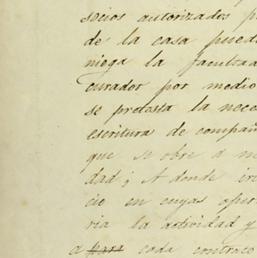 socios autorizados p
de la casa pued
niega la facultad
curador por medio
se pretasta la nece
escritura de compañ
que se obre á m
dad; A donde ir
cio en cuyas oper
ria la actividad y
a para cada contrato